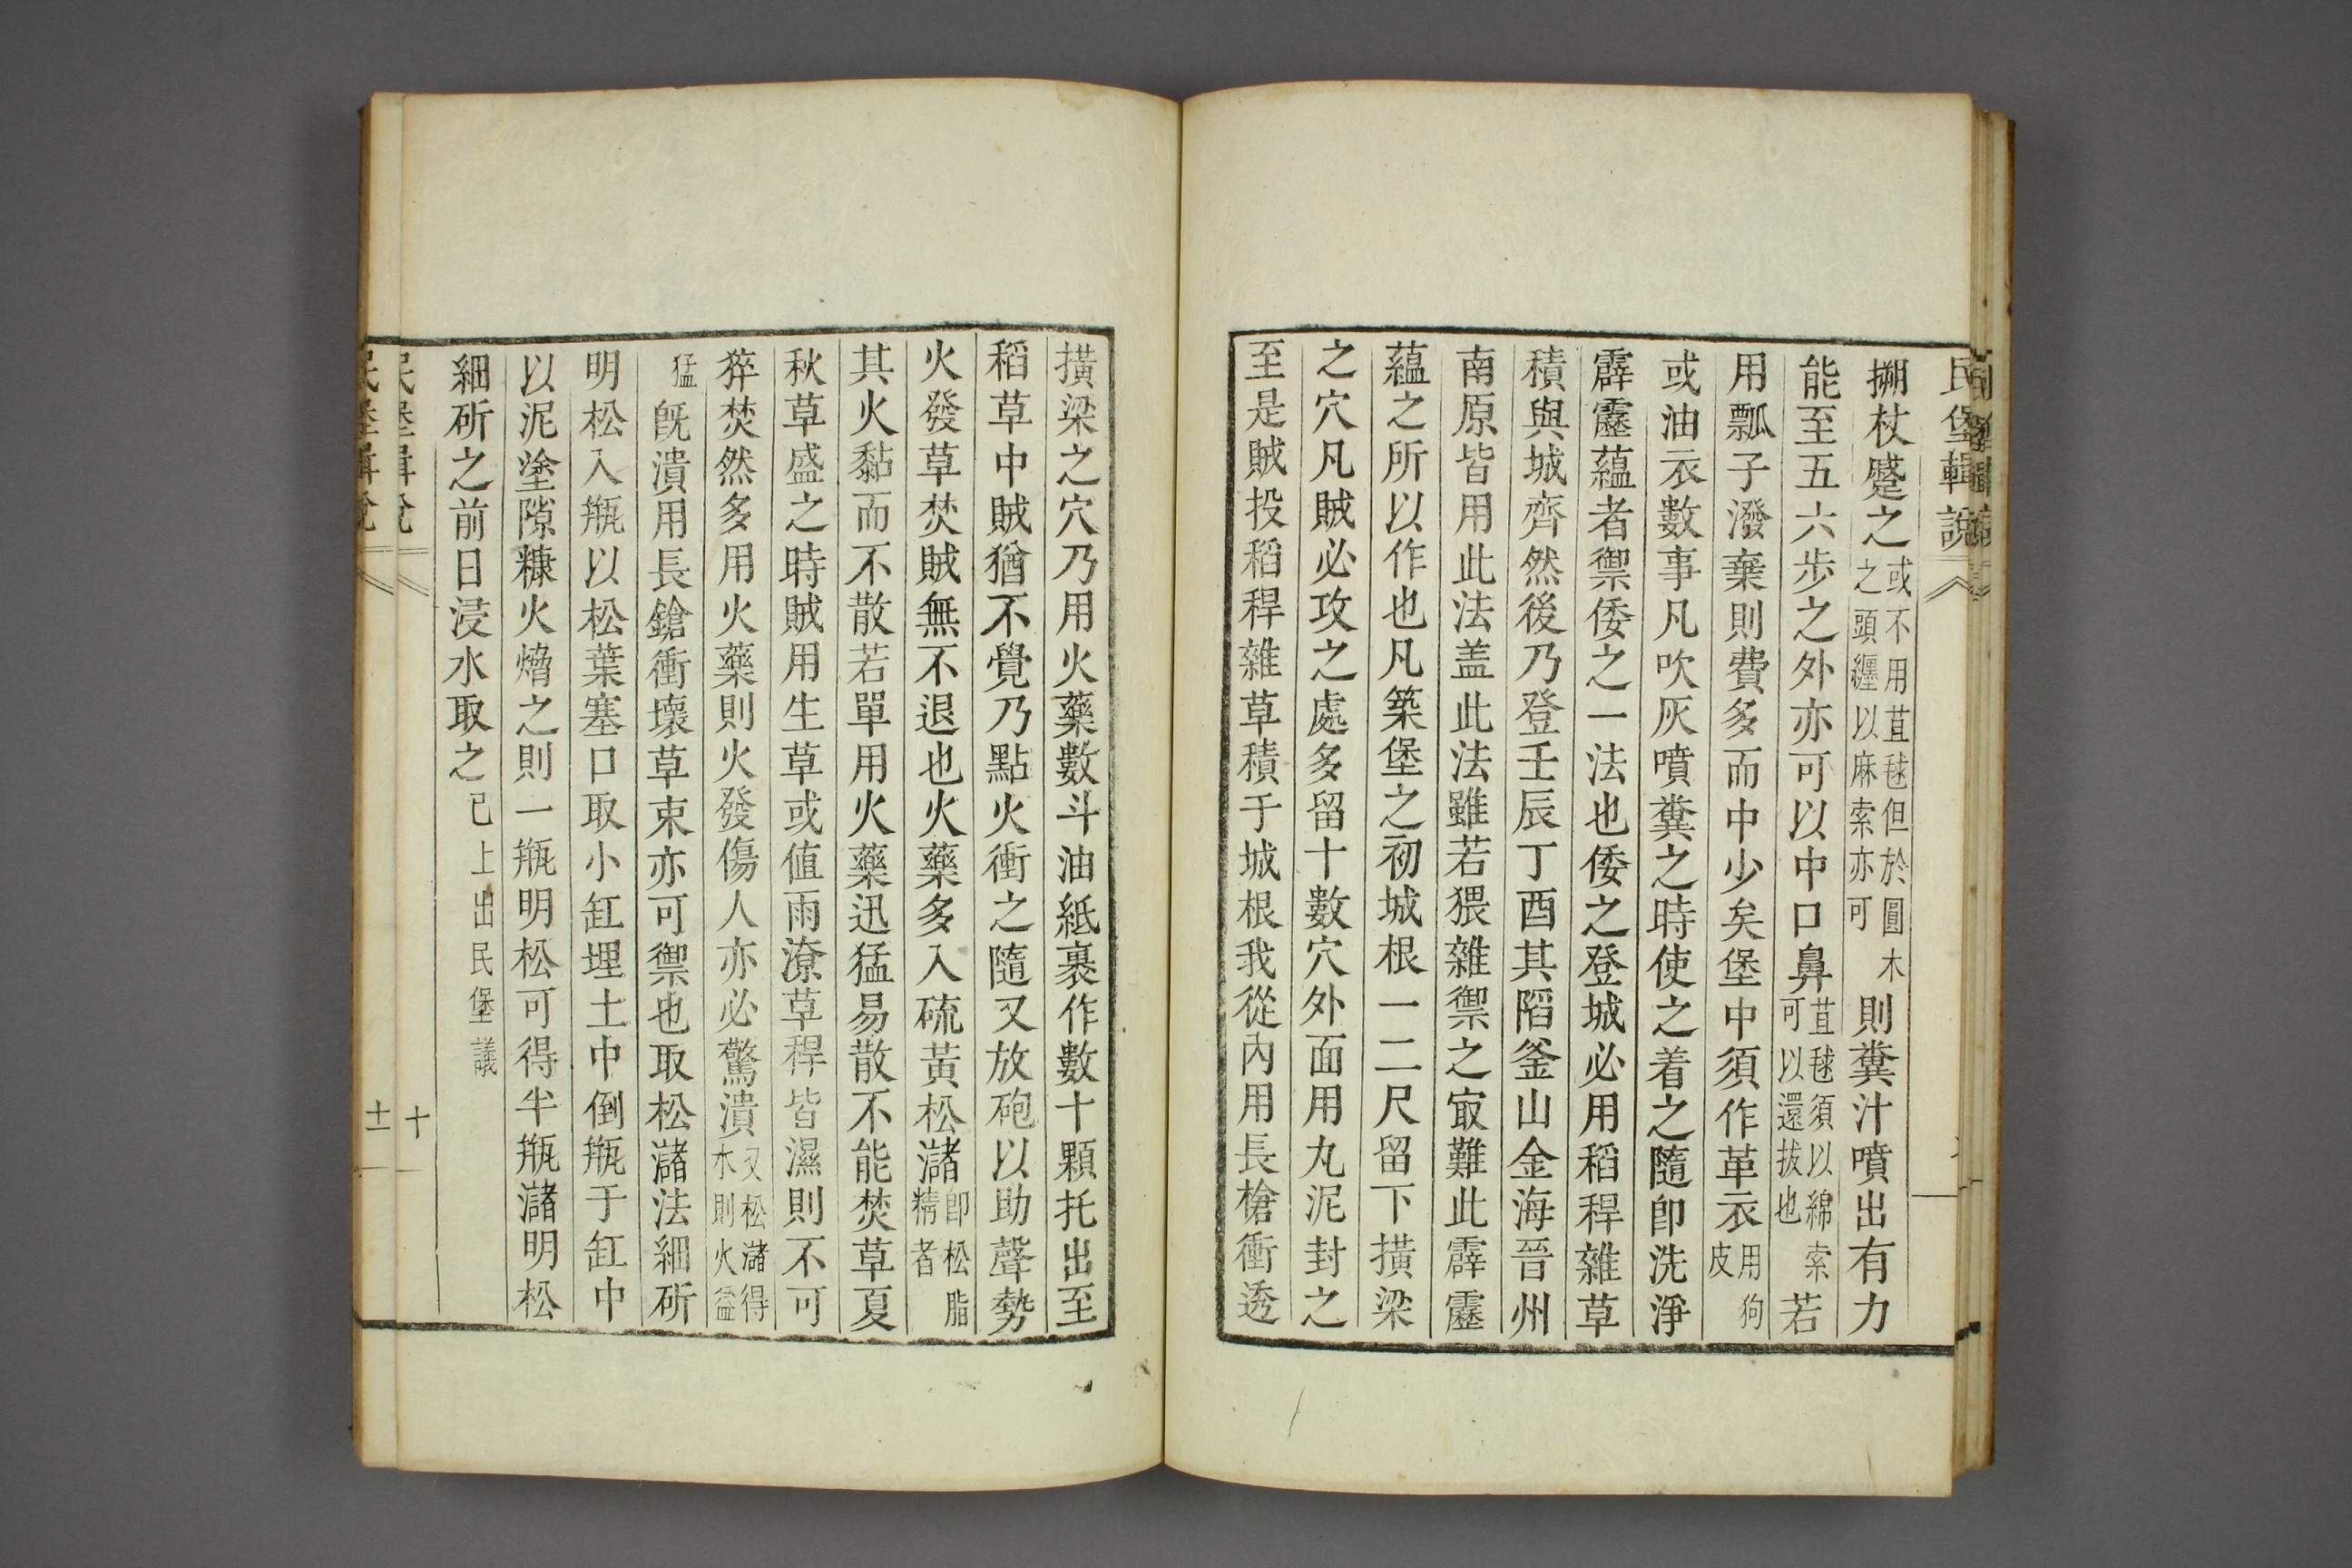 民堡輯說
搠杖蹙之或不用苴毬但於圓木之頭纏以麻索亦可則糞汁噴出有力
能至五六步之外亦可以中口鼻苴毬須以綿索可以還拔也若
用瓢子潑棄則費多而中少矣堡中須作革衣用狗皮
或油衣數事凡吹灰噴糞之時使之着之隨卽洗淨
霹靂蘊者禦倭之一法也倭之登城必用稻稈雜草
積與城齊然後乃登壬辰丁酉其陷釜山金海晉州
南原皆用此法盖此法雖若猥雜禦之㝡難此霹靂
蘊之所以作也凡築堡之初城根一二尺留下撗梁
之穴凡賊必攻之處多留十數穴外面用丸泥封之
至是賊投稻稈雜草積于城根我從內用長槍衝透
撗梁之穴乃用火藥數斗油紙裹作數十顆托出至
稻草中賊猶不覺乃點火衝之隨又放砲以助聲勢
火發草焚賊無不退也火藥多入硫黃松瀦卽松脂精者
其火黏而不散若單用火藥迅猛易散不能焚草夏
秋草盛之時賊用生草或值雨潦草稈皆濕則不可
猝焚然多用火藥則火發傷人亦必驚潰又松瀦得水則火益
猛旣潰用長鎗衝壞草束亦可禦也取松瀦法細斫
明松入甁以松葉塞口取小缸埋土中倒甁于缸中
以泥塗隙糠火熁之則一甁明松可得半甁瀦明松
細斫之前日浸水取之已上出民堡議
民堡輯說 十
民堡輯說 十一